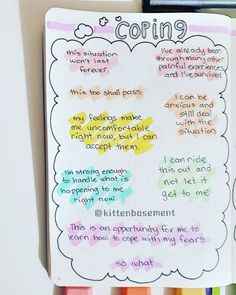 coping
this situation
won't last
forever.
I've already been
through many other
painful experiences
and I've survived
this too shall pass.
I can be
anxious and
still deal
with the
situation
my feelings make
me uncomfortable
right now, but I can
accept them.
I'm strong enough
to handle what is
happening to me
right now
I can ride
this out and
not let it
get to me
@kittenbasement
This is an opportunity for me to
learn how to cope with my fears
so what